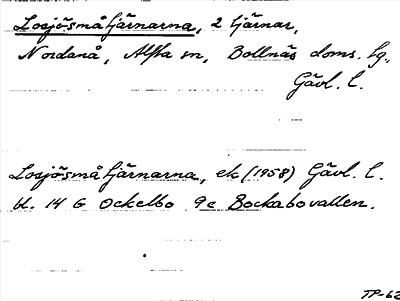 Losjösmåtjärnarna, 2 tjärnar,
Nordanå, Alfta sn, Bollnäs doms. hg.,
Gävl. l.
Losjösmåtjärnarna, ek (1958) Gävl. l.
bl. 14 G Ockelbo 9c Bockabovallen.
TP-62